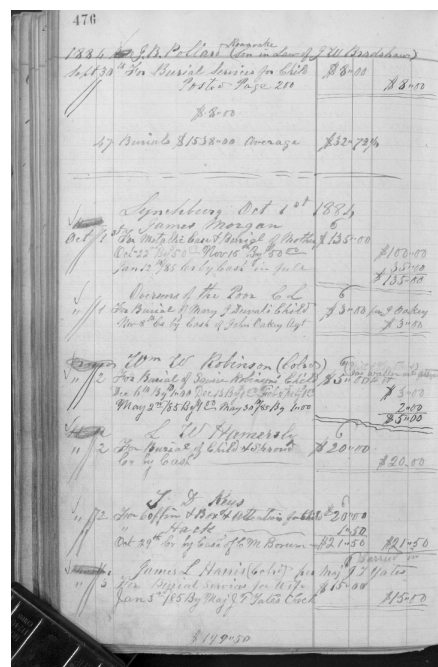 476
1884 J. B. Pollard Roanoke (Son in Law of J W Bradshaw)
Sept 30th For Burial Services for Child $8-00
Posted Page 280 $8-00
$8-00
47 Burials $1538-00 Average $32-72
Lynchburg Oct 1st 1884
James Morgan 6
Oct 1st For Metallic Case & Burial of Mother $135-00
Oct 22 By 50 Nov 15 By 50 $100-00
Jan 12 '85 by Cash in full 35-00
$135-00
Overseers of the Poor C L 6
" 1 For Burial of Mary J Duval's Child $3-00 Oakey
Nov 8th by Cash of John Oakey Agt $3-00
Wm W Robinson (Cold)
" 2 For Burial of Child $5-00
Dec 6th By 1-00 Dec 13 By $ $3-00
May 2nd /85 By May 30 /85 By 1-00 2-00
$5-00
L W Homersly 6
" 2 For Burial of Child & Shroud $20-00
by Cash $20-00
T D 6
" 2 For Coffin & Box & Attention for Child $20-00
Hack 1-50
Oct 29th by Cash of C M $21-50 $21-50
James L Harris (Cold) per Maj J T Yates
" 3 For Burial Service for Wife $15-00
Jan 3rd '85 By Maj J T Yates Check $15-00
$199-50